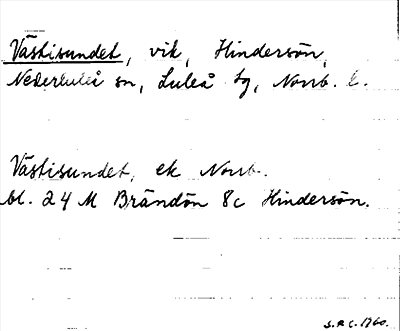 Västisundet, vik, Hindersön,
Nederluleå sn, Luleå tg, Norrb. l.
Västisundet, ek Norrb.
bl. 24 M Brändön 8c Hindersön.
S.R.C. 1960.